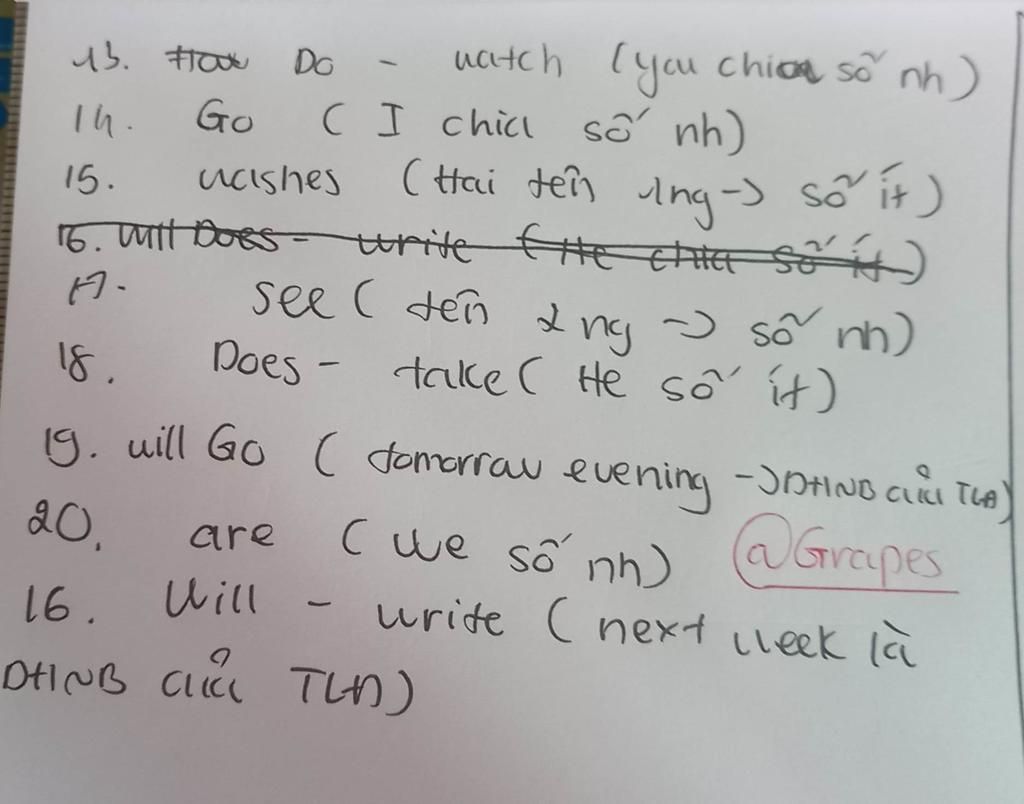 13. How Do - watch (you chia số nh)
14. Go (I chia số nh)
15. washes (Hai tên 1ng -> số ít)
16. Will Does - write (He chia số ít)
17. see (tên 2 ng -> số nh)
18. Does - take (He số ít)
19. will Go (tomorrow evening -> DHNB của TLĐ)
20. are (we số nh) @Grapes
16. Will - write (next week là
DHNB của TLĐ)